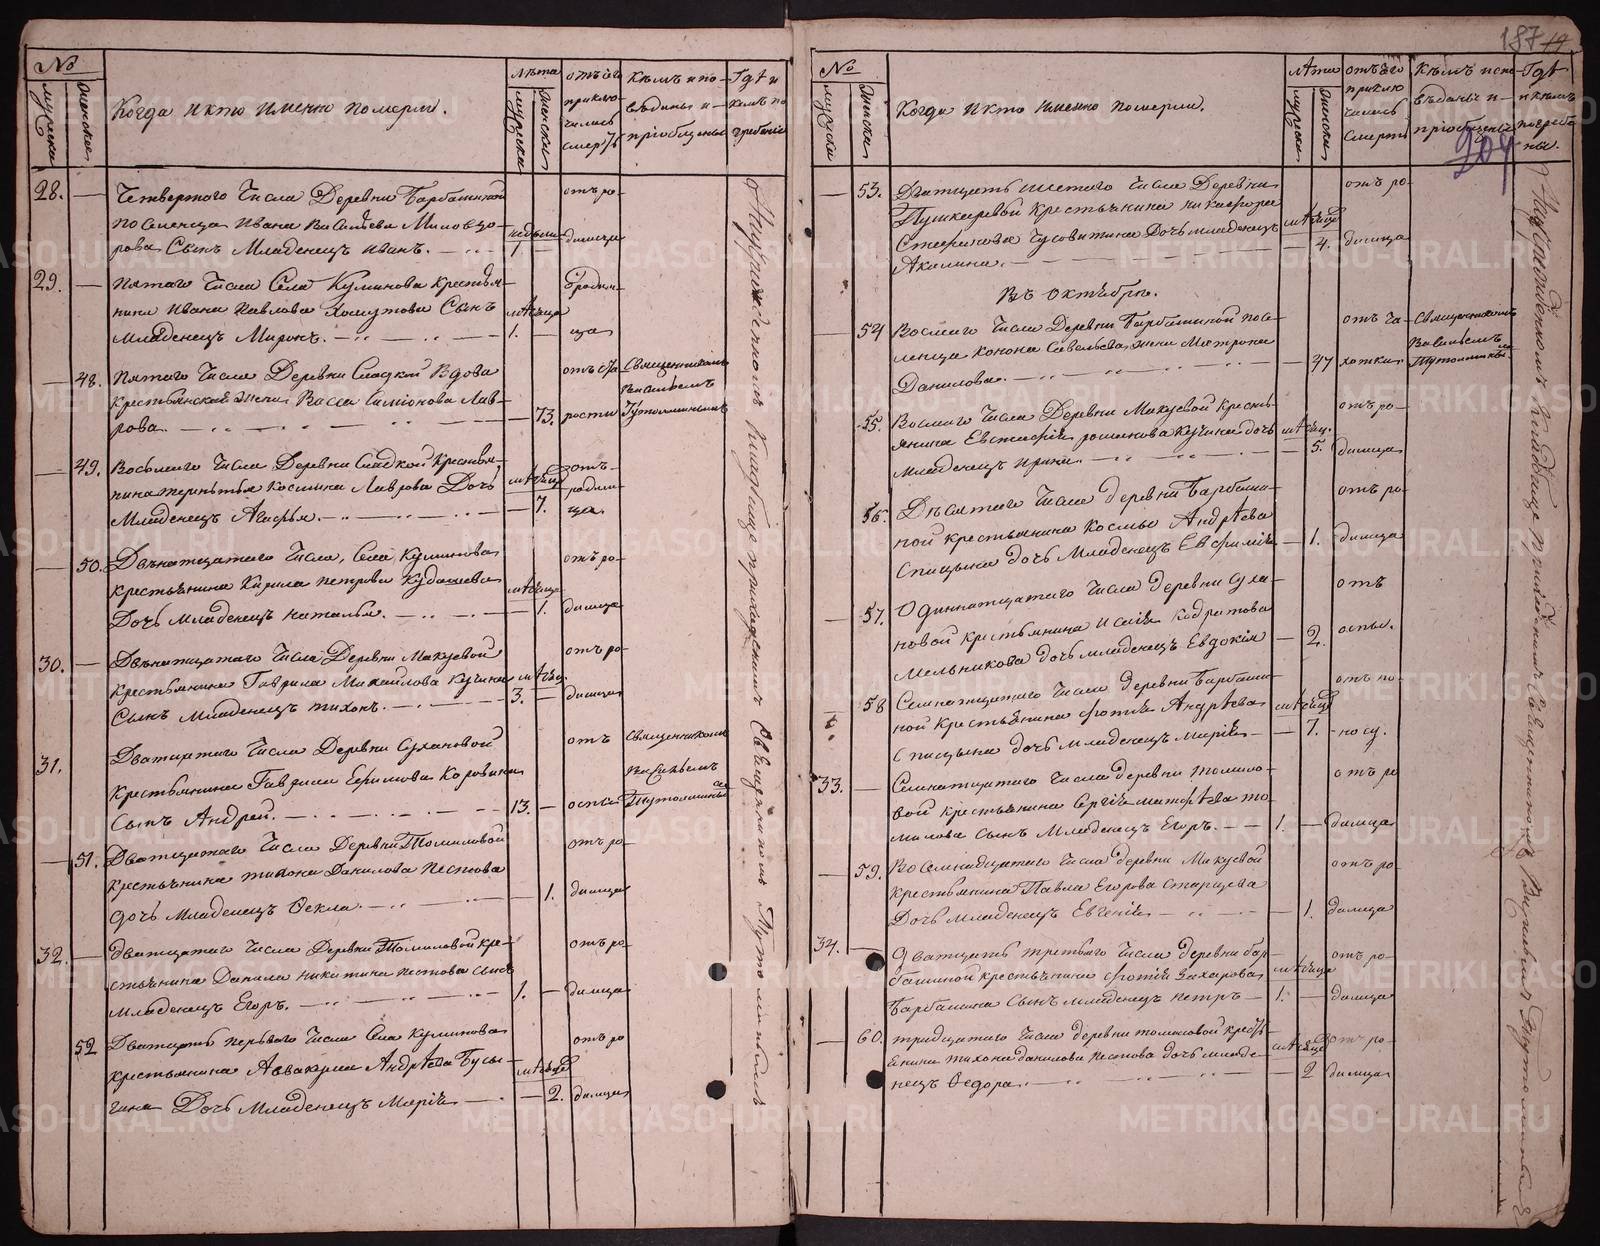 187 19
№
мужска
женска
Когда и кто именно померли.
лѣта
мужска
женска
отъ чего
приклю-
чилась
смерть
Кѣмъ испо-
вѣданы и
пріобщены
Гдѣ и
кѣмъ по
гребены
28. Четвертаго Числа Деревни Барбашиной
поселенца Ивана Васильева
Сынъ Младенецъ Иванъ.
недѣли
1
отъ ро-
димца
29. Пятаго Числа Села Куминова крестьян-
нина Ивана Павлова Хомутова Сынъ
Младенецъ Миронъ.
мѣсяца
1.
родим-
ца
48. Пятаго Числа Деревни Сладкой Вдова
крестьянская жена Васса Симіонова Лав-
рова.
73.
отъ ста
рости
Священникомъ
Васильемъ
Тутолминымъ
49. Восьмаго Числа Деревни Сладкой Крестьян-
нина Терентья Космина Лаврова Дочь
Младенецъ Агафья.
мѣсяц
7.
отъ
родим-
ца.
50. Двѣнатцатаго Числа, Села Куминова
крестьянина Кирила Петрова Кудашева
Дочь Младенецъ Наталья.
мѣсяца
1.
отъ ро-
димца
30. Двѣнатцатаго Числа Деревни Макуевой
крестьянина Гаврила Михайлова Кучина
Сынъ Младенецъ Тихонъ.
мѣсяц.
3.
отъ ро-
димца
31. Дватцатаго Числа Деревни Сухановой
Крестьянина Гаврила Ефимова Коровина
Сынъ Андрей.
13.
отъ
оспы
Священникомъ
Васильемъ
Тутолминым
51. Дватцатаго Числа Деревни Томиловой
крестьянина Тихона Данилова Пестова
дочь Младенецъ Ѳекла.
1.
отъ ро-
димца
32. Дватцатаго Числа Деревни Томиловой кре-
стьянина Данила Никитина Пестова сынъ
Младенецъ Егоръ.
1.
отъ ро-
димца
52 Дватцать перваго Числа Села Куминова
крестьянина Аввакума Андрѣева Бусы-
гина Дочь Младенецъ Марія
мѣсяц
2.
отъ ро
димца
На приходскомъ кладбище приходскимъ Священникомъ Тутолминымъ
№
мужска
женска
Когда и кто именно померли.
лѣта
мужска
женска
отъ чего
приклю
чилась
смерть
Кѣмъ испо-
вѣданы и
пріобщены
Гдѣ
и кѣмъ
погребе
ны.
204
53. Дватцать шестаго Числа Деревни
Пушкаревой Крестьянина Никифора
Дочь младенецъ
Акилина.
мѣсяца
4.
отъ ро-
димца
Въ Октябрѣ.
54 Восмаго Числа Деревни Барбашиной посе-
ленца Конона Савельева жена Матрона
Данилова.
47
отъ ча-
хотки
Священникомъ
Васильемъ
Тутолминым
55. Восмаго Числа Деревни Макуевой кресть-
янина Евстафія Романова Кучина дочь
младенецъ Ирина.
мѣсяц.
5.
отъ ро-
димца
56. Десятаго Числа деревни Барбаши-
ной крестьянина Космы Андрѣева
Спицына дочь Младенецъ Евфимія
1.
отъ ро-
димца
57. Одиннатцатаго Числа деревни Суха-
новой крестьянина Исаія Кодратова
Мельникова дочь младенецъ Евдокія
2.
отъ
оспы.
58 Семнатцатаго Числа деревни Барбаши-
ной крестьянина Фотія Андрѣева
Спицына дочь младенецъ Марія
мѣсяц
7.
отъ по-
носу.
33. Семнатцатаго Числа деревни Томило-
вой крестьянина Сергія Матфѣева То-
милова сынъ Младенецъ Егоръ.
1.
отъ ро
димца
59. Восемнадцатаго Числа деревни Макуевой
крестьянина Павла Егорова Старцева
Дочь Младенецъ Евгенія
1.
отъ ро-
димца
34. Дватцать третьяго Числа деревни Бар-
башиной крестьянина Фотія Захарова
Барбашина Сынъ младенецъ Петръ
мѣсяца
1.
отъ ро-
димца
60. тридцатаго Числа деревни Томиловой кресть-
янина Тихона Данилова Пестова дочь младе-
нецъ Ѳедора.
мѣсяц
2
отъ ро-
димца
На приходскомъ кладбище приходскимъ Священникомъ Васильемъ Тутолминымъ
METRIKI.GASO-URAL.RU